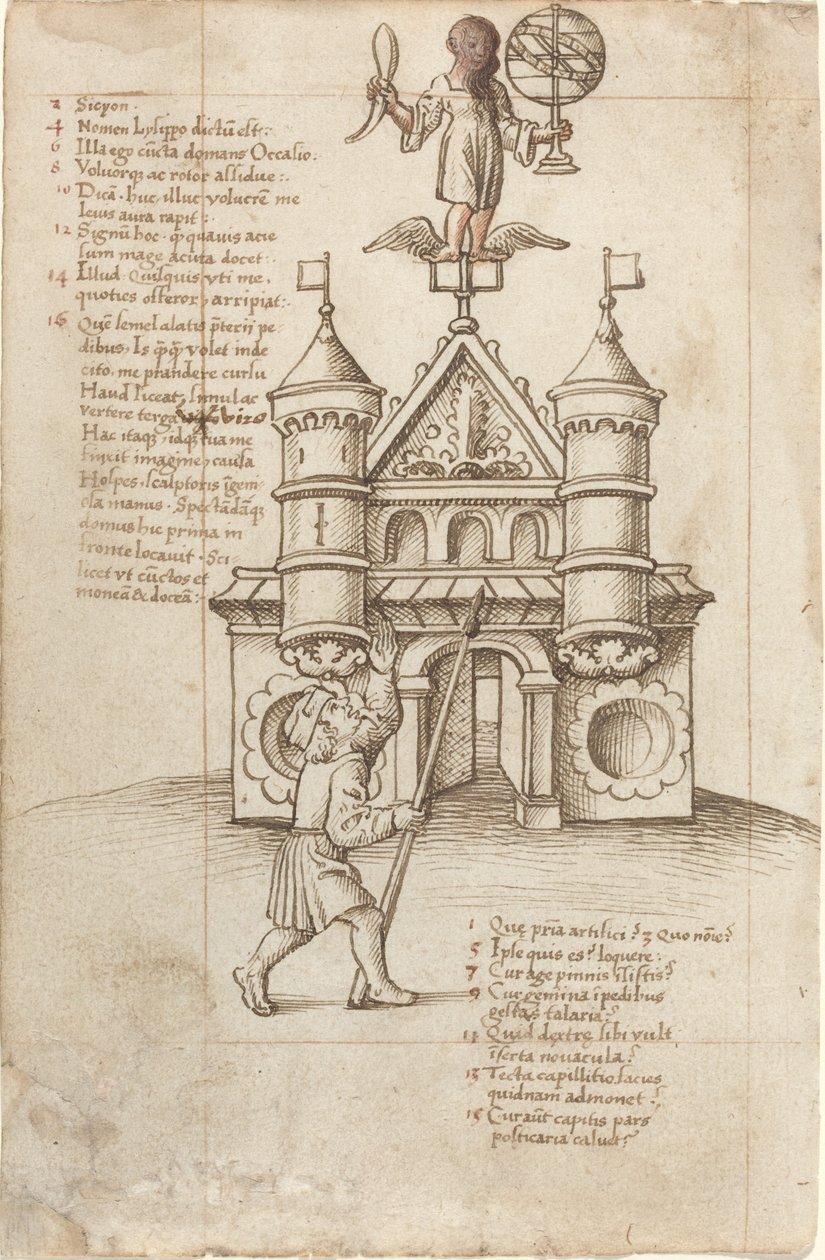 2 Sicyon.
4 Nomen Lysippo dictũ est:.
6 Illa ego cũcta domans Occasio.
8 Voluorq̃ ac rotor assidue:.
10 Dicã. huc, illuc volucrẽ me
leuis aura rapit:.
12 Signũ hoc. q̃ quauis acie
sum mage acuta docet:.
14 Illud. Quisquis vti me,
quoties offeror, arripiat:.
16 Quẽ semel alatis p̃terij pe-
dibus, Is q̃q̃ volet inde
cito, me prãdere cursu
Haud liceat, simul ac
vertere terga viro
Hac itaq̃, idq̃ tua me
finxit imagine, causa
Hospes, scalptoris ĩgeni-
osa manus. Spectãdãq̃
domus hic prima in
fronte locauit. Sci-
licet vt cũctos et
moneã & doceã:.
1 Quę pr̃ia artifici? 3 Quo nõie?
5 Ipse quis es? loquere:
7 Cur age pinnis ĩsistis?
9 Cur gemina ĩ pedibus
gestas talaria?
11 Quid dextrę sibi vult
ĩserta nouacula?
13 Tecta capillitio facies
quidnam admonet?
15 Cur aũt capitis pars
posticaria caluet?